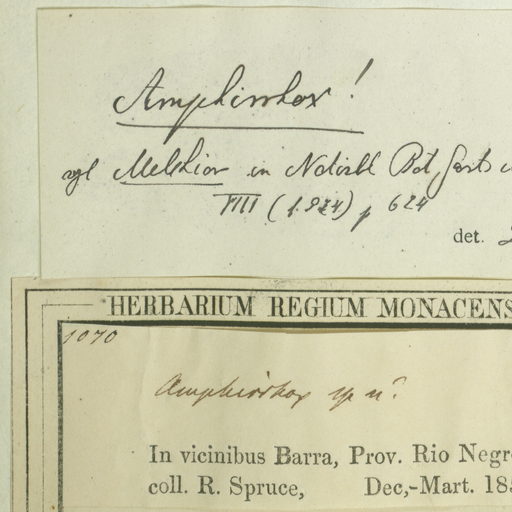 Amphirrhox!
vgl Melchior in Notizbl Bot. Garts
VIII (1924) p 624
det.
HERBARIUM REGIUM MONACENS
1070
Amphirrhox sp n?
In vicinibus Barra, Prov. Rio Negr
coll. R. Spruce, Dec,-Mart. 185